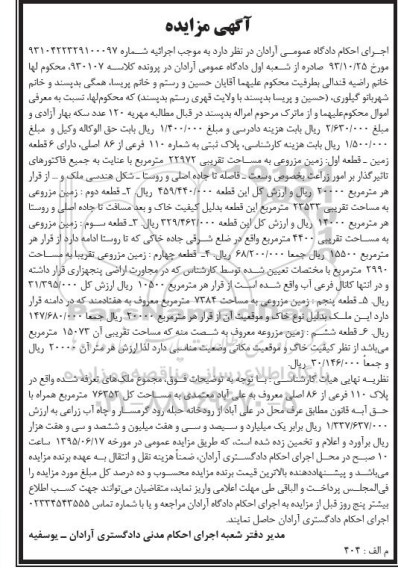 آگهی مزایده
اجرای احکام دادگاه عمومی آرادان در نظر دارد به موجب اجرائیه شماره ۹۳۱۰۴۲۲۳۲۹۱۰۰۰۹۷
مورخ ۹۳/۱۰/۲۵ صادره از شعبه اول دادگاه عمومی آرادان در پرونده کلاسه ۹۳۰۱۰۷، محکوم لها
خانم راضیه قندالی بطرفیت محکوم علیهما آقایان حسین و رستم و خانم پریسا، همگی بدپسند و خانم
شهربانو گیلوری، (حسین و پریسا بدپسند با ولایت قهری رستم بدپسند) که محکوم‌لها، نسبت به معرفی
اموال محکوم‌علیهما و از ماترک مرحوم امراله بدپسند در قبال مطالبه مهریه ۱۲۰ عدد سکه بهار آزادی و
مبلغ ۲/۶۳۰/۰۰۰ ریال بابت هزینه دادرسی و مبلغ ۱/۴۰۰/۰۰۰ ریال بابت حق الوکاله وکیل و مبلغ
۱/۵۰۰/۰۰۰ ریال بابت هزینه کارشناسی، پلاک ثبتی به شماره ۱۱۰ فرعی از ۸۶ اصلی، دارای ۶ قطعه
زمین ـ قطعه اول: زمین مزروعی به مساحت تقریبی ۲۲۹۷۲ مترمربع با عنایت به جمیع فاکتورهای
تاثیرگذار بر امور زراعت بخصوص وسعت ـ فاصله تا جاده اصلی و روستا ـ شکل هندسی ملک و ... از قرار
هر مترمربع ۲۰۰۰۰ ریال و ارزش کل این قطعه ۴۵۹/۴۴۰/۰۰۰ ریال. ۲ـ قطعه دوم: زمین مزروعی
به مساحت تقریبی ۲۳۵۳۳ مترمربع این قطعه بدلیل کیفیت خاک و بعد مسافت تا جاده اصلی و روستا
هر مترمربع ۱۴۰۰۰ ریال و ارزش کل این قطعه ۳۲۹/۴۶۲/۰۰۰ ریال. ۳ـ قطعه سوم: زمین مزروعی
به مساحت تقریبی ۴۴۰۰ مترمربع واقع در ضلع شرقی جاده خاکی که تا روستا ادامه دارد از قرار هر
مترمربع ۱۵۵۰۰ ریال جمعا ۶۸/۲۰۰/۰۰۰ ریال. ۴ـ قطعه چهارم: زمین مزروعی تقریبا به مساحت
۲۹۹۰ مترمربع با مختصات تعیین شده توسط کارشناس که در مجاورت اراضی پنجهزاری قرار داشته
و در انتها کانال فرعی آب واقع شده است از قرار هر مترمربع ۱۰۵۰۰ ریال ارزش کل ۳۱/۳۹۵/۰۰۰
ریال. ۵ـ قطعه پنجم: زمین مزروعی به مساحت ۷۳۸۴ مترمربع معروف به هفتادمند که در دامنه قرار
دارد این ملک بدلیل نوع خاک و موقعیت آن از قرار هر مترمربع ۲۰۰۰۰ ریال جمعا ۱۴۷/۶۸۰/۰۰۰
ریال. ۶ـ قطعه ششم: زمین مزروعه معروف به شصت منه که مساحت تقریبی آن ۱۵۰۷۳ مترمربع
می‌باشد از نظر کیفیت خاک و موقعیت مکانی وضعیت مناسبی دارد لذا ارزش هر متر آن ۲۰۰۰۰ ریال
و جمعا ۳۰/۱۴۶/۰۰۰ ریال.
نظریه نهایی هیات کارشناسی: با توجه به توضیحات فوق، مجموع ملک‌های تعرفه شده واقع در
پلاک ۱۱۰ فرعی از ۸۶ اصلی معروف به علی آباد معتمدی به مساحت کل ۷۶۳۵۲ مترمربع همراه با
حق آبه قانون مطابق عرف محل در علی آباد از رودخانه حبله رود گرمسار و چاه آب زراعی به ارزش
۱/۳۳۷/۶۳۷/۰۰۰ ریال برابر یک میلیارد و سیصد و سی و هفت میلیون و ششصد و سی و هفت هزار
ریال برآورد و اعلام و تخمین زده شده است، که طریق مزایده عمومی در مورخه ۱۳۹۵/۰۶/۱۷ ساعت
۱۰ صبح در محل اجرای احکام دادگستری آرادان، ضمناً هزینه نقل و انتقال به عهده برنده مزایده
می‌باشد و پیشنهاددهنده بالاترین قیمت برنده مزایده محسوب و ده درصد کل مبلغ مورد مزایده را
فی‌المجلس پرداخت و الباقی طی مهلت اعلامی واریز نماید، متقاضیان می‌توانند جهت کسب اطلاع
بیشتر پنج روز قبل از مزایده به اجرای احکام دادگاه آرادان مراجعه و یا با شماره تماس ۰۲۳۳۴۵۴۳۵۵۵
اجرای احکام دادگستری آرادان حاصل نمایند.
مدیر دفتر شعبه اجرای احکام مدنی دادگستری آرادان ـ یوسفیه
م الف: ۴۰۴